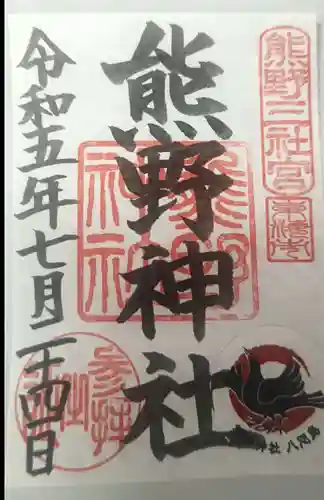 熊野三社宮
熊野神社
令和五年七月二十四日
参拝
神社 八咫烏